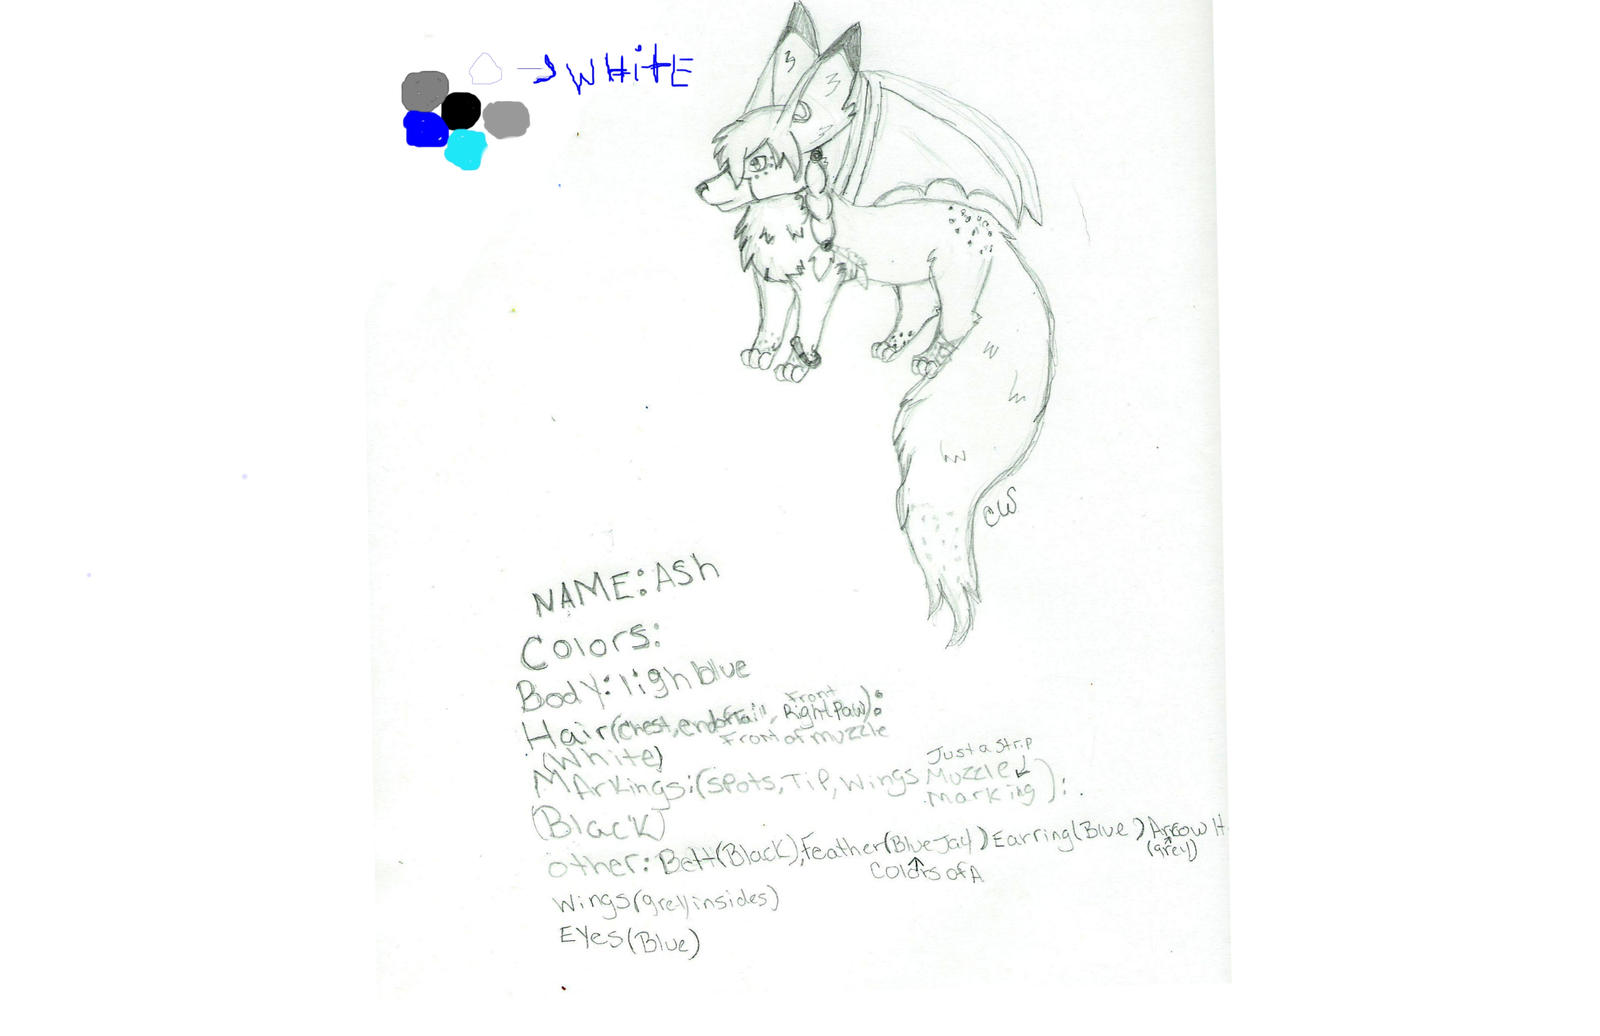 → WHITE
CW
NAME: ASh
Colors:
Body: ligh blue
Front
Hair (Chest, end of Tail, Right Paw):
Front of muzzle
(White)
Just a Strip
MArkings: (spots, Tip, wings Muzzle
marking):
(Black)
other: Belt (Black), Feather (Blue Jay) Earring (Blue) Arrow H
(grey)
Colors of A
wings (grey insides)
Eyes (Blue)